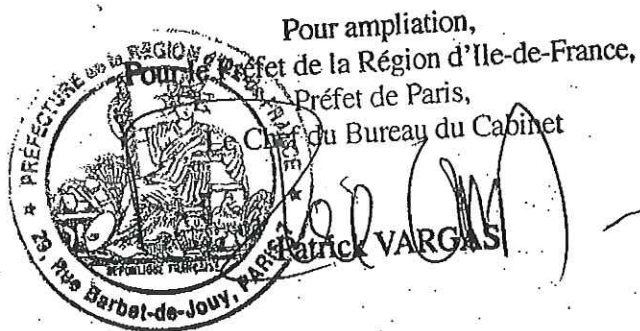 Pour ampliation,
Pour le Préfet de la Région d'Ile-de-France,
Préfet de Paris,
Le Chef du Bureau du Cabinet
Patrick VARGAS
PRÉFECTURE de la RÉGION d'ILE de FRANCE
29, Rue Barbet-de-Jouy, PARIS 7
REPUBLIQUE FRANÇAISE